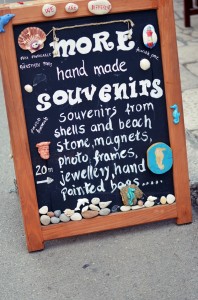 MORE
hand made
souvenirs
souvenirs from
shells and beach
stone, magnets,
photo frames,
20m
jewellery, hand
painted bags.....